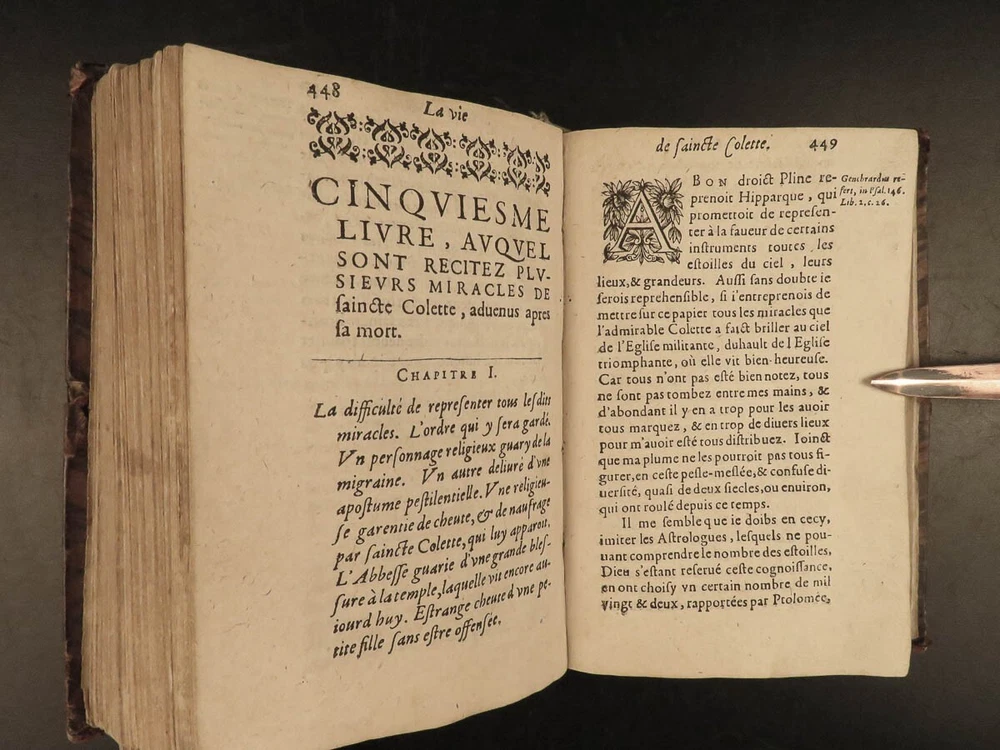 448
La vie
CINQVIESME
LIVRE, AVQVEL
SONT RECITEZ PLV-
SIEVRS MIRACLES DE
ſaincte Colette, aduenus apres
ſa mort.
CHAPITRE I.
La difficulté de repreſenter tous leſdits
miracles. L'ordre qui y ſera gardé.
Vn perſonnage religieux guary de la
migraine. Vn autre deliuré d'vne
apoſtume peſtilentielle. Vne religieu-
ſe garentie de cheute, & de naufrage
par ſaincte Colette, qui luy apparoit.
L'Abbeſſe guarie d'vne grande bleſ-
ſure à la temple, laquelle vit encore au-
iourd huy. Eſtrange cheute d vne pe-
tite fille ſans eſtre offenſée.
de ſaincte Colette.
449
A BON droict Pline re-
prenoit Hipparque, qui
promettoit de repreſen-
ter à la faueur de certains
inſtruments toutes les
eſtoilles du ciel, leurs
lieux, & grandeurs. Auſſi ſans doubte ie
ſerois reprehenſible, ſi i'entreprenois de
mettre ſur ce papier tous les miracles que
l'admirable Colette a faict briller au ciel
de l'Egliſe militante, du hault de l Egliſe
triomphante, où elle vit bien-heureuſe.
Car tous n'ont pas eſté bien notez, tous
ne ſont pas tombez entre mes mains, &
d'abondant il y en a trop pour les auoir
tous marquez, & en trop de diuers lieux
pour m'auoir eſté tous diſtribuez. Ioinct
que ma plume ne les pourroit pas tous fi-
gurer, en ceſte peſle-meſlée, & confuſe di-
uerſité, quaſi de deux ſiecles, ou enuiron,
qui ont roulé depuis ce temps.
Il me ſemble que ie doibs en cecy,
imiter les Aſtrologues, leſquels ne pou-
uant comprendre le nombre des eſtoilles,
Dieu s'eſtant reſerué ceſte cognoiſſance,
en ont choiſy vn certain nombre de mil
vingt & deux, rapportées par Ptolomée,
Genebrardus re-
fert, in Pſal. 146.
Lib. 2. c. 26.